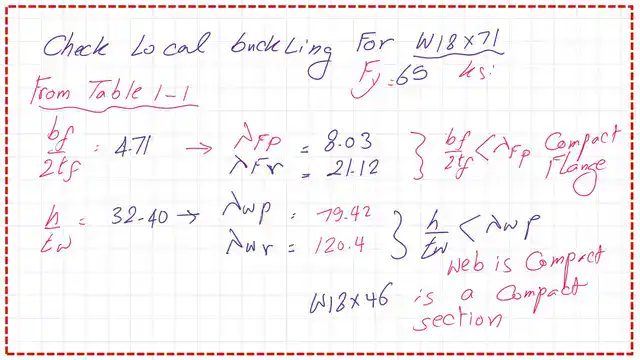 Check Local buckling For W18x71
Fy = 65 ksi
From Table 1-1
bf/2tf = 4.71 → λFp = 8.03 } bf/2tf < λFp Compact
λFr = 21.12 Flange
h/tw = 32.40 → λwp = 79.42 } h/tw < λwp
λwr = 120.4
Web is Compact
W18x46 is a Compact
section